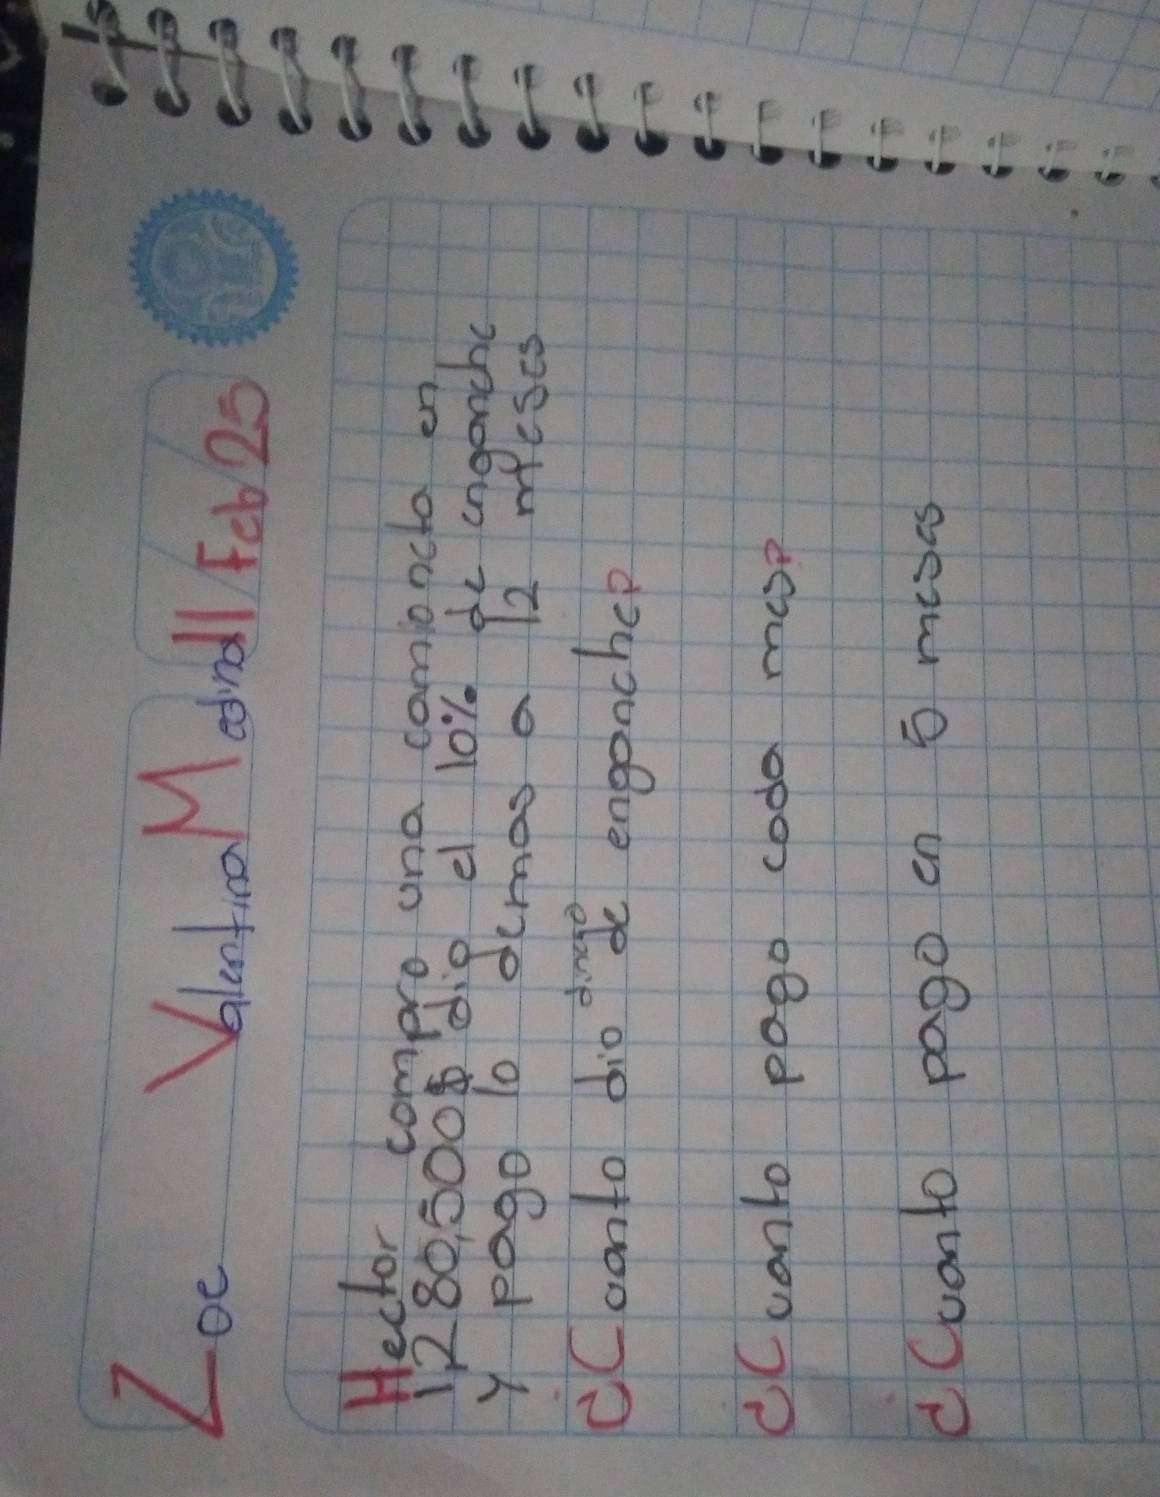 Zoe Valentina Medina 11/Feb/25
Hector compro una camioneta en
1,280,500$ dio el 10% de enganche
y pago lo demas a 12 meses
¿Cuanto dio dinero de enganche?
¿Cuanto pago cada mes?
¿Cuanto pago en 5 meses